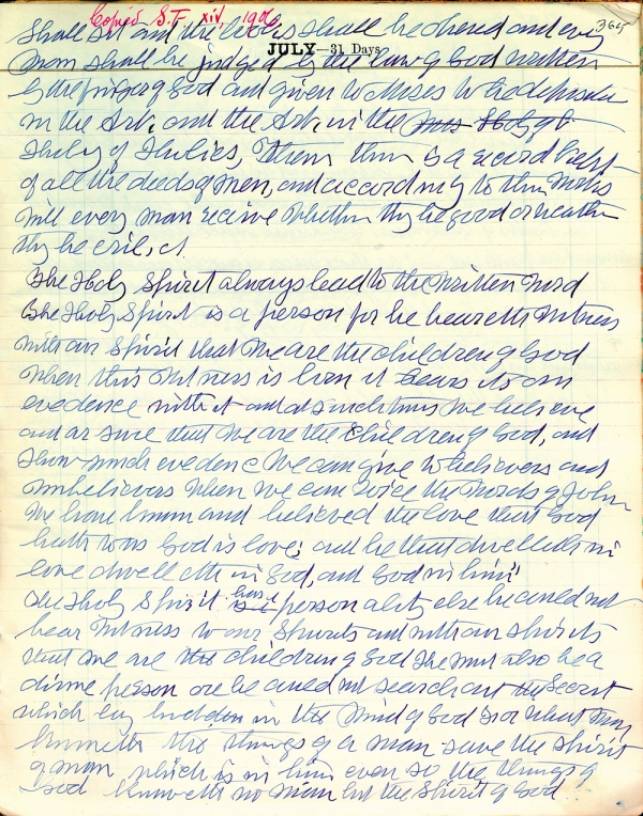 Copied S.T. xiv, 1906
365
JULY—31 Days
shall sit and the books shall be opened and every
man shall be judged by the law of God written
by the finger of God and given to Moses to be deposited
in the Ark, and the Ark, in the
Holy of Holies, there is a record kept
of all the deeds of men, and according to their works
will every man receive whether they be good or whether
they be evil,
The Holy Spirit always lead to the written word
The Holy Spirit is a person for he beareth witness
with our spirit that we are the children of God
when this witness is born it bears its own
evidence with it and at such times we believe
and ar sure that we are the children of God, and
how much evedence we can give to believers and
unbelievers when we can voice the words of John
We have known and believed the love that God
hath to us God is love; and he that dwelleth in
love dwelleth in God, and God in him"
The Holy Spirit has a personality else he could not
bear witness to our spirits and with our spirits
that we are the children of God He must also be a
divine person else he could not search out the secret
which lay hidden in the mind of God For what man
knoweth the things of a man save the spirit
of man which is in him even so the things of
God knoweth no man but the Spirit of God